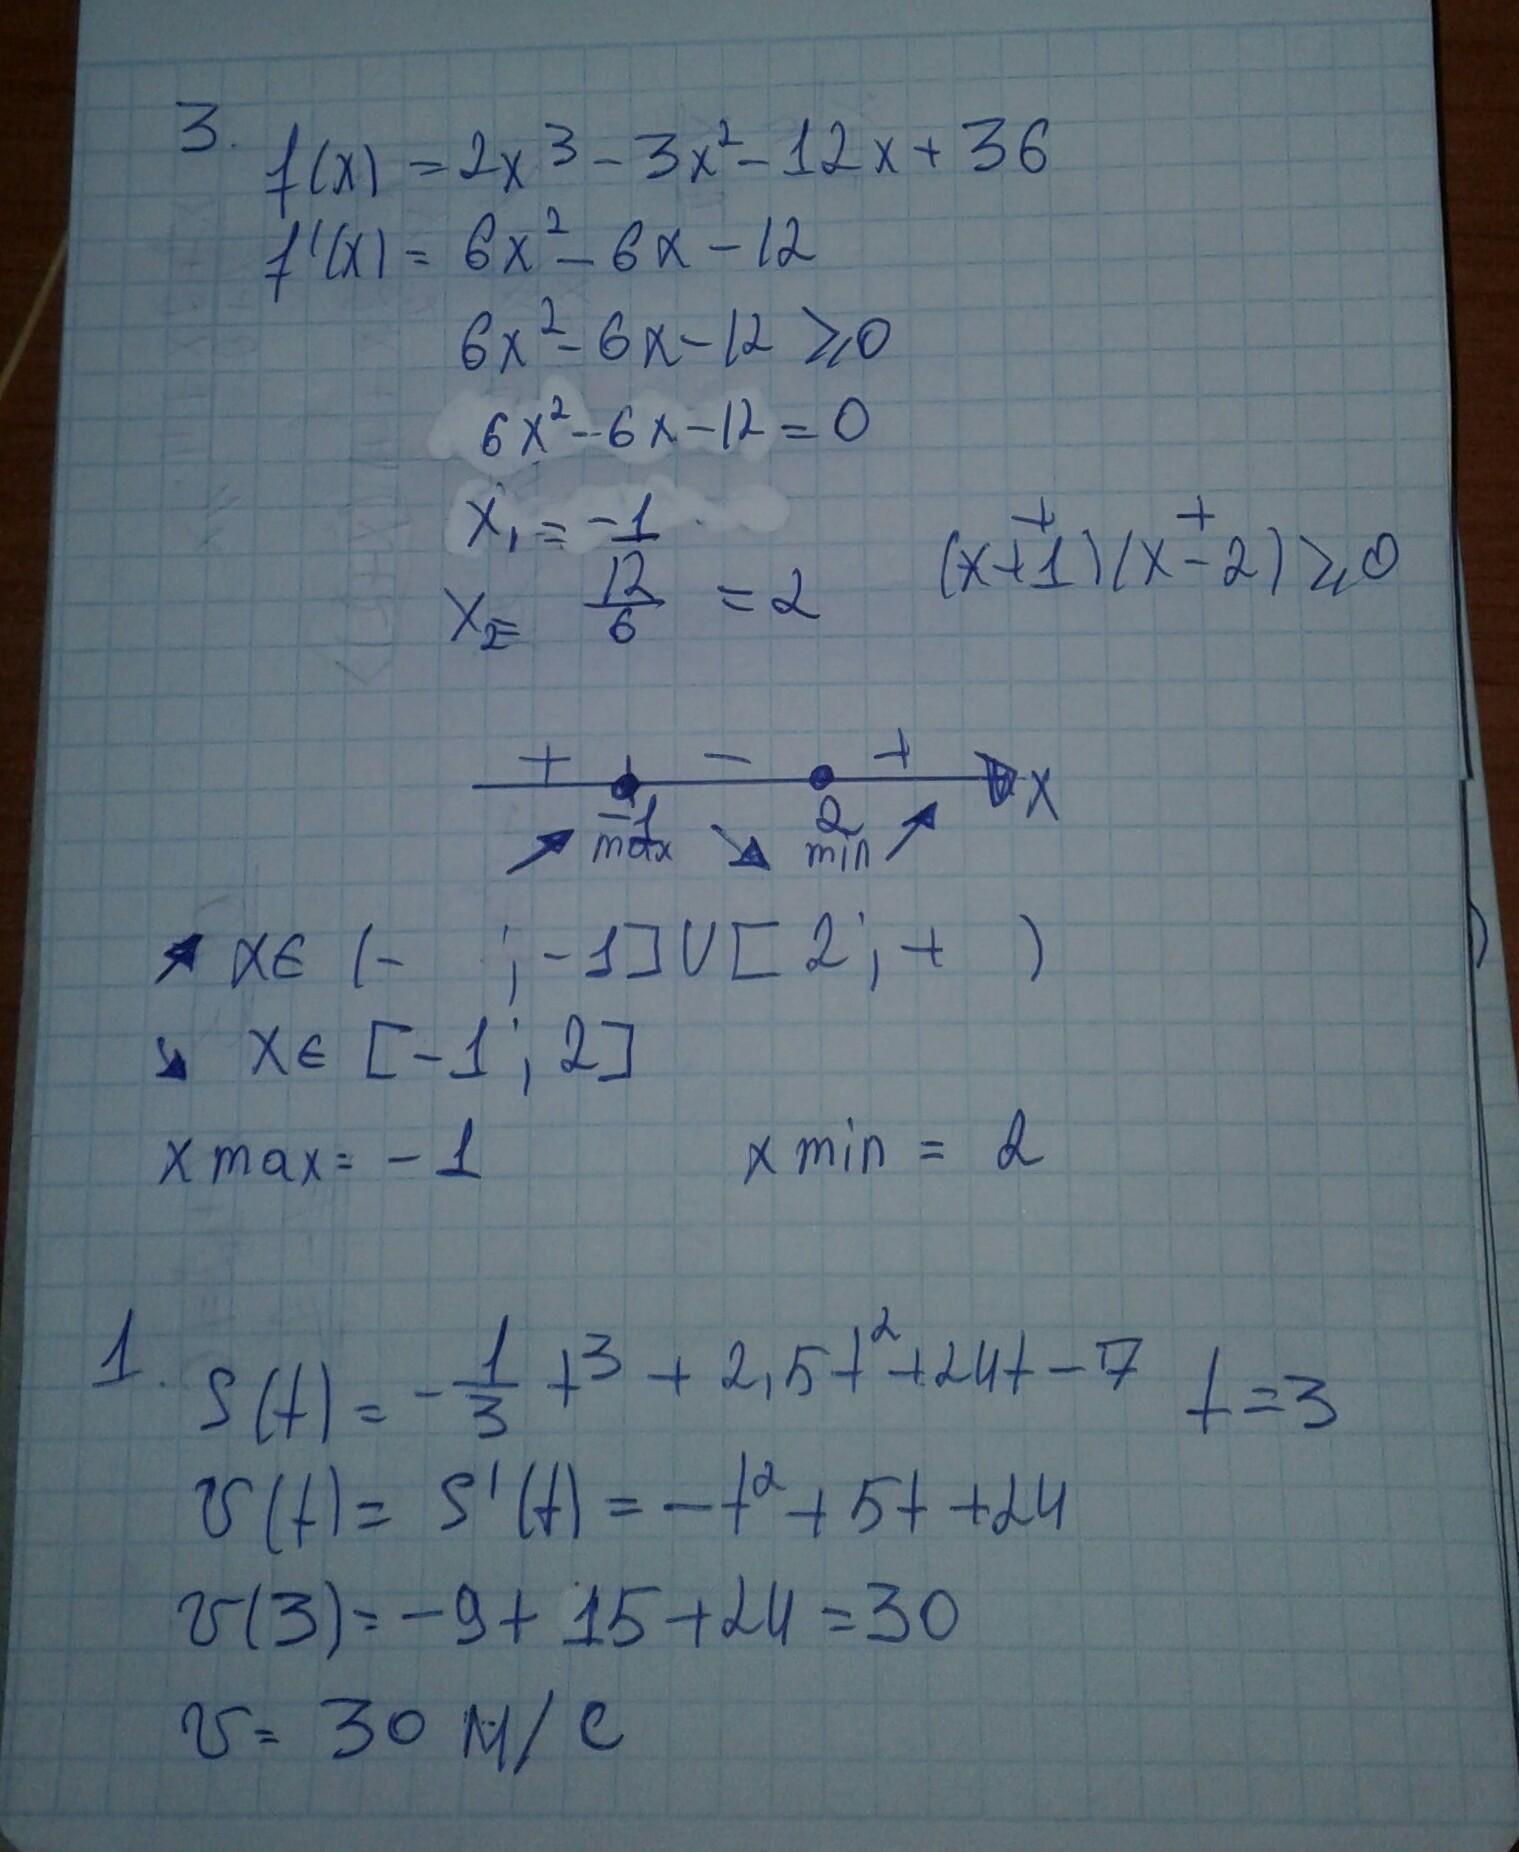 3. f(x) = 2x³ - 3x² - 12x + 36
f'(x) = 6x² - 6x - 12
6x² - 6x - 12 ⩾ 0
6x² - 6x - 12 = 0
x₁ = -1
x₂ = 12/6 = 2
+ +
(x+1)(x-2) ⩾ 0
+ - + x
-1 2
max min
↗ x∈ (- ; -1] U [2 ; + )
↘ x∈ [-1 ; 2]
x max = -1 x min = 2
1. S(t) = -1/3 t³ + 2,5t² + 24t - 7 t = 3
v(t) = S'(t) = -t² + 5t + 24
v(3) = -9 + 15 + 24 = 30
v = 30 м/с